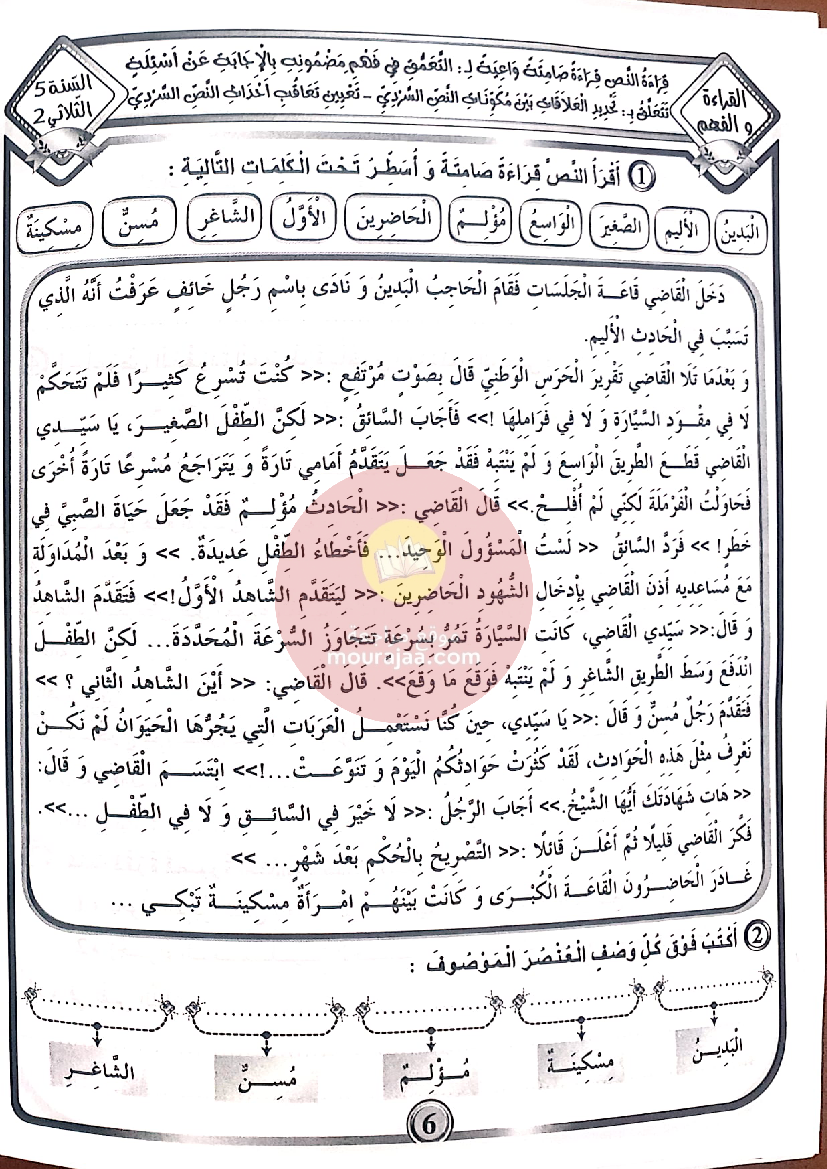 قِرَاءَةُ النَّصِ قِرَاءَةً صَامِتَةً وَاعِيَةً لِـ: التَّعَمُّقِ فِي فَهْمِ مَضْمُونِهِ بِالْإِجَابَةِ عَنْ أَسْئِلَةٍ
تَتَعَلَّقُ بِـ: تَحْدِيدِ العَلَاقَاتِ بَيْنَ مُكَوِّنَاتِ النَّصِّ السَّرْدِيِّ - تَعْيِينِ تَعَاقُبِ أَحْدَاثِ النَّصِّ السَّرْدِيِّ
القراءة
و الفهم
السّنة 5
الثّلاثي 2
1 أَقْرَأُ النَّصَّ قِرَاءَةً صَامِتَةً وَ أُسَطِّرُ تَحْتَ الْكَلِمَاتِ التَّالِيَةِ :
الْبَدِينُ الْأَلِيمِ الصَّغِيرَ الْوَاسِعُ مُؤْلِمٌ الْحَاضِرِينَ الْأَوَّلُ الشَّاغِرِ مُسِنٌّ مِسْكِينَةٌ
دَخَلَ الْقَاضِي قَاعَةَ الْجَلَسَاتِ فَقَامَ الْحَاجِبُ الْبَدِينُ وَ نَادَى بِاسْمِ رَجُلٍ خَائِفٍ عَرَفْتُ أَنَّهُ الَّذِي
تَسَبَّبَ فِي الْحَادِثِ الْأَلِيمِ.
وَ بَعْدَمَا تَلَا الْقَاضِي تَقْرِيرَ الْحَرَسِ الْوَطَنِيِّ قَالَ بِصَوْتٍ مُرْتَفِعٍ :<< كُنْتَ تُسْرِعُ كَثِيرًا فَلَمْ تَتَحَكَّمْ
لَا فِي مِقْوَدِ السَّيَّارَةِ وَ لَا فِي فَرَامِلِهَا !>> فَأَجَابَ السَّائِقُ :<< لَكِنَّ الطِّفْلَ الصَّغِيرَ، يَا سَيِّدِي
الْقَاضِي قَطَعَ الطَّرِيقَ الْوَاسِعَ وَ لَمْ يَنْتَبِهْ فَقَدْ جَعَلَ يَتَقَدَّمُ أَمَامِي تَارَةً وَ يَتَرَاجَعُ مُسْرِعًا تَارَةً أُخْرَى
فَحَاوَلْتُ الْفَرْمَلَةَ لَكِنِّي لَمْ أُفْلِحْ.>> قَالَ الْقَاضِي :<< الْحَادِثُ مُؤْلِمٌ فَقَدْ جَعَلَ حَيَاةَ الصَّبِيِّ فِي
خَطَرٍ! >> فَرَدَّ السَّائِقُ << لَسْتُ الْمَسْؤُولَ الْوَحِيدَ... فَأَخْطَاءُ الطِّفْلِ عَدِيدَةٌ. >> وَ بَعْدَ الْمُدَاوَلَةِ
مَعَ مُسَاعِدِيهِ أَذِنَ الْقَاضِي بِإِدْخَالِ الشُّهُودِ الْحَاضِرِينَ :<< لِيَتَقَدَّمِ الشَّاهِدُ الْأَوَّلُ!>> فَتَقَدَّمَ الشَّاهِدُ
وَ قَالَ:<< سَيِّدِي الْقَاضِي، كَانَتِ السَّيَّارَةُ تَمُرُّ بِسُرْعَةٍ تَتَجَاوَزُ السُّرْعَةَ الْمُحَدَّدَةَ... لَكِنَّ الطِّفْلَ
انْدَفَعَ وَسَطَ الطَّرِيقِ الشَّاغِرِ وَ لَمْ يَنْتَبِهْ فَوَقَعَ مَا وَقَعَ>>. قَالَ الْقَاضِي: << أَيْنَ الشَّاهِدُ الثَّانِي ؟ >>
فَتَقَدَّمَ رَجُلٌ مُسِنٌّ وَ قَالَ :<< يَا سَيِّدِي، حِينَ كُنَّا نَسْتَعْمِلُ الْعَرَبَاتِ الَّتِي يَجُرُّهَا الْحَيَوَانُ لَمْ نَكُنْ
نَعْرِفُ مِثْلَ هَذِهِ الْحَوَادِثِ، لَقَدْ كَثُرَتْ حَوَادِثُكُمُ الْيَوْمَ وَ تَنَوَّعَتْ...!>> ابْتَسَمَ الْقَاضِي وَ قَالَ:
<< هَاتِ شَهَادَتَكَ أَيُّهَا الشَّيْخُ.>> أَجَابَ الرَّجُلُ :<< لَا خَيْرَ فِي السَّائِقِ وَ لَا فِي الطِّفْلِ ...>>.
فَكَّرَ الْقَاضِي قَلِيلًا ثُمَّ أَعْلَنَ قَائِلًا :<< التَّصْرِيحُ بِالْحُكْمِ بَعْدَ شَهْرٍ... >>
غَادَرَ الْحَاضِرُونَ الْقَاعَةَ الْكُبْرَى وَ كَانَتْ بَيْنَهُمْ امْرَأَةٌ مِسْكِينَةٌ تَبْكِي ...
mourajaa.com
2 أَكْتُبُ فَوْقَ كُلِّ وَصْفٍ الْعُنْصُرَ الْمَوْصُوفَ :
الْبَدِينُ مِسْكِينَةٌ مُؤْلِمٌ مُسِنٌّ الشَّاغِرِ
6